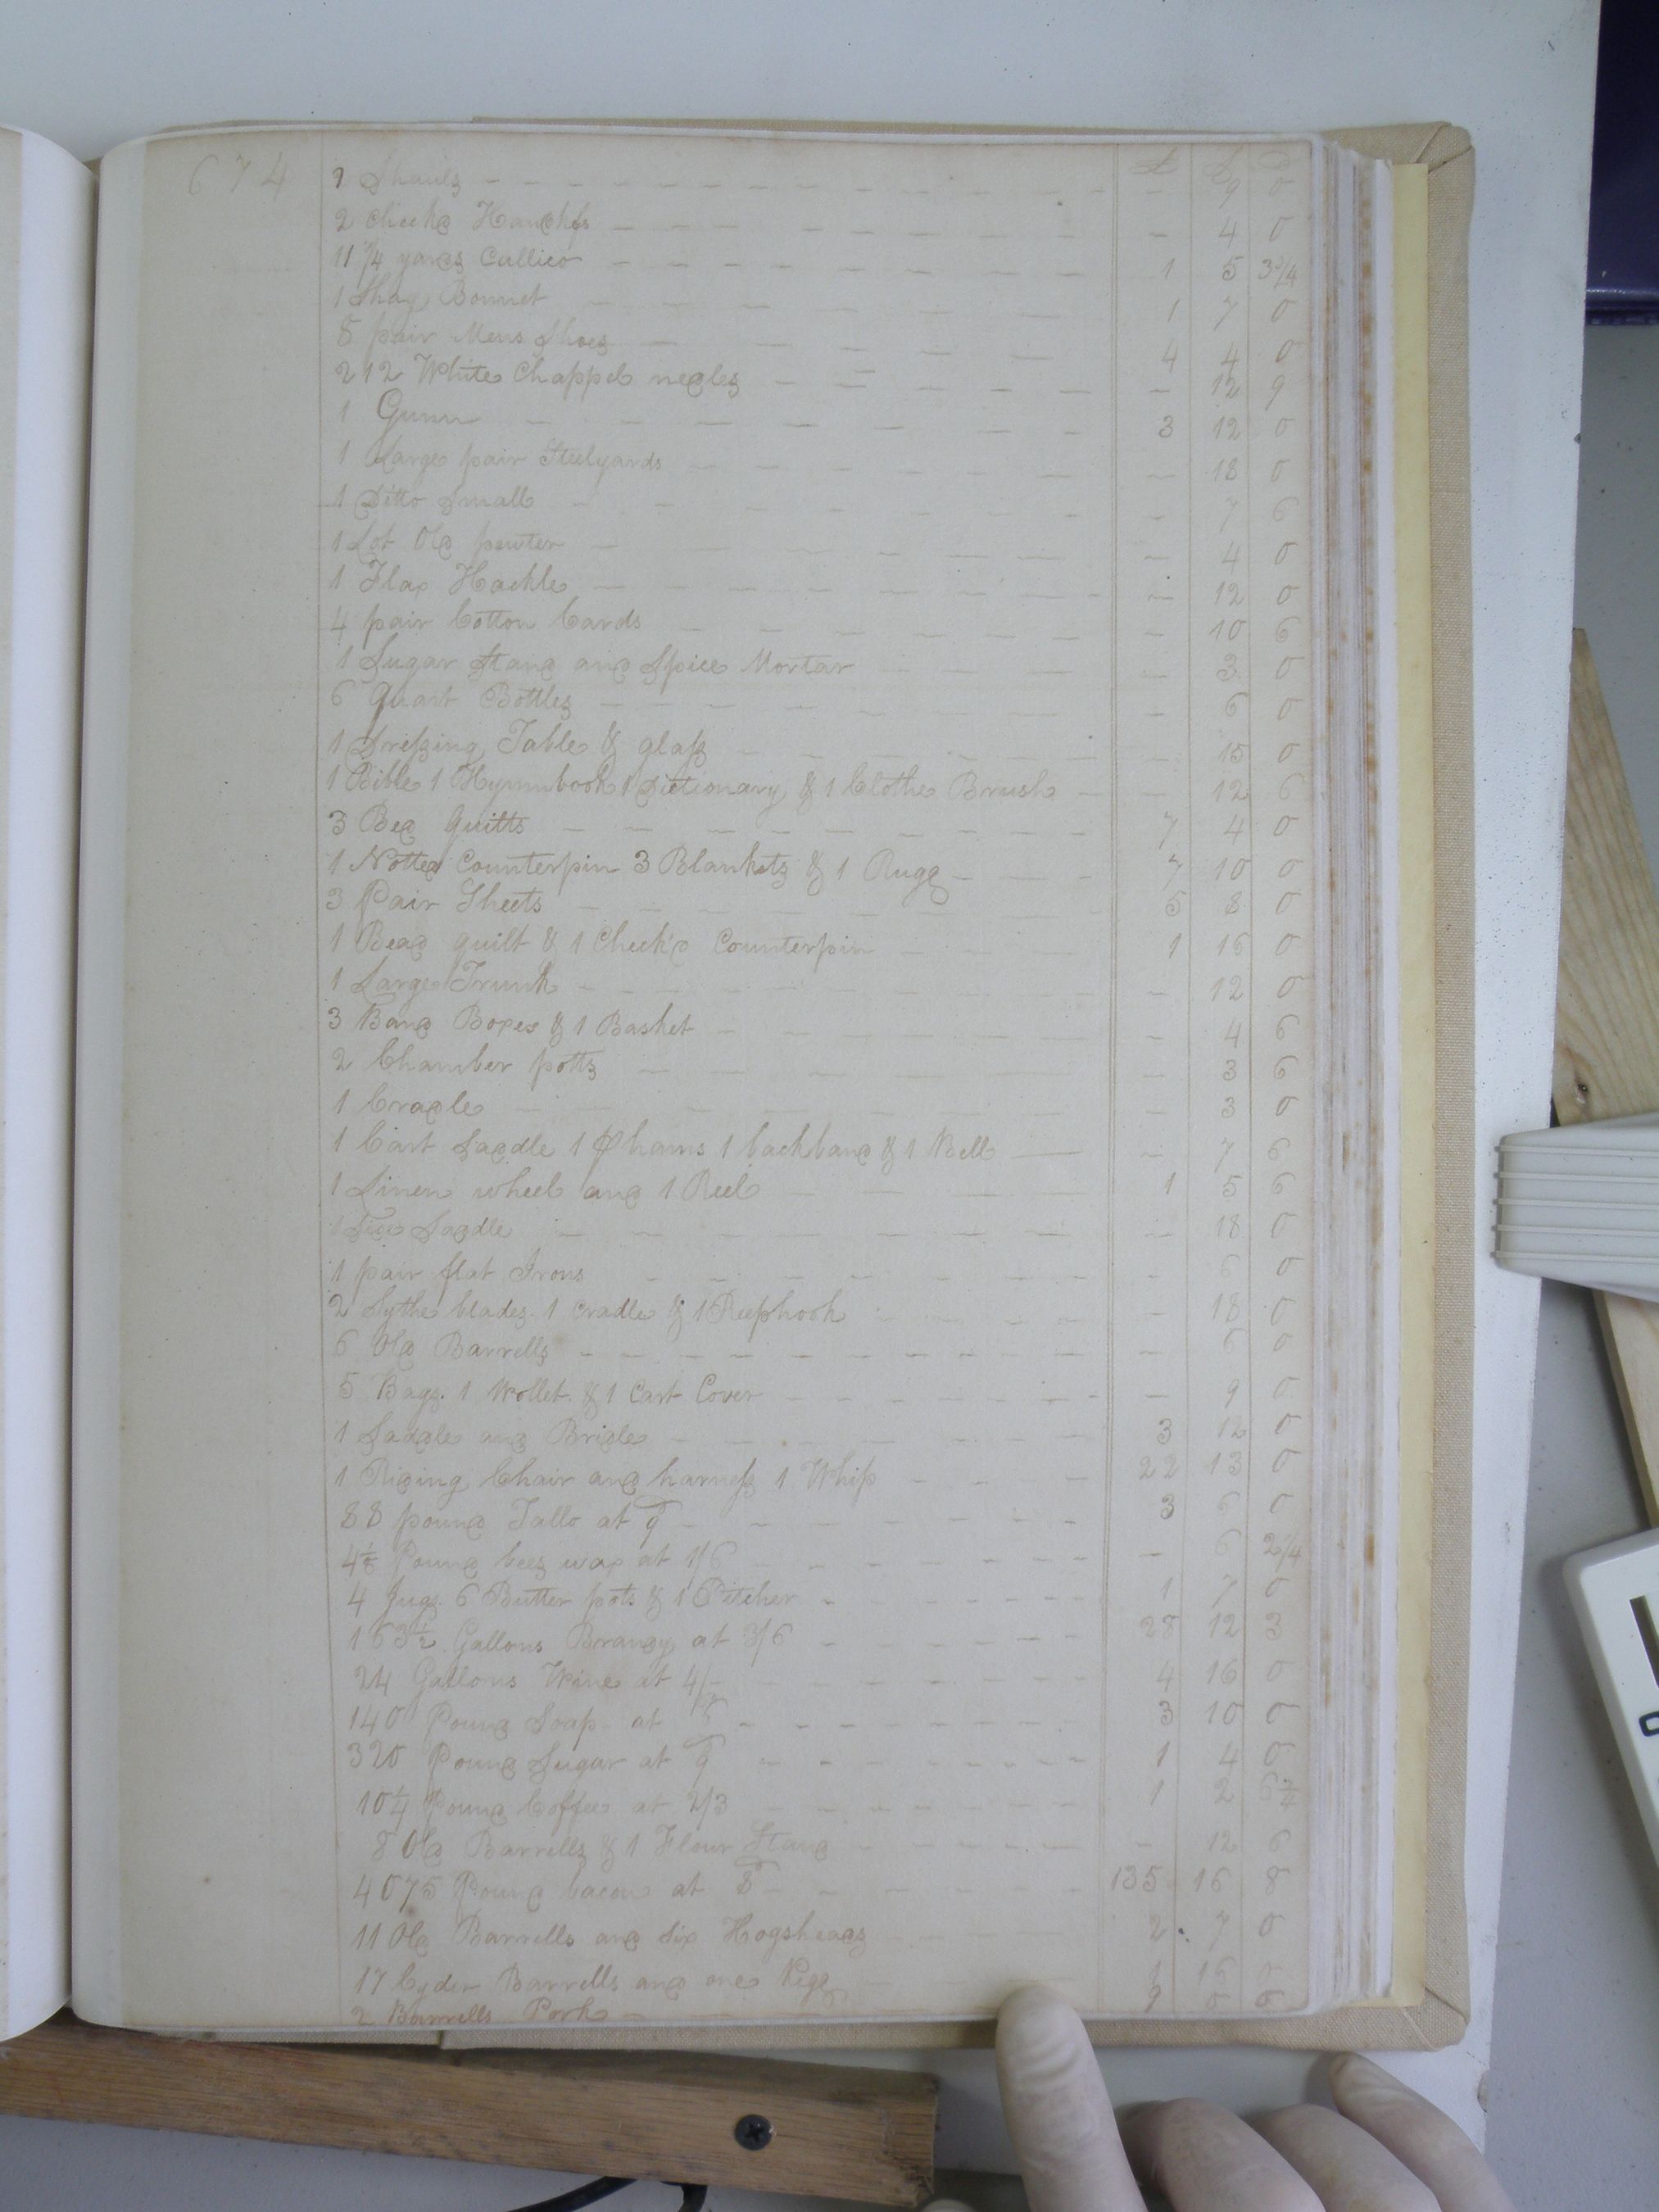 674
£ S D
2 Shauls - - 9 0
2 Checkd Handkfs - - 4 0
11 1/4 yards Callico - 1 5 3 3/4
1 Shag Bonnet - 1 7 0
8 pair Mens Shoes - 4 4 0
212 White Chappel nedles - - 12 9
1 Gunn - 3 12 0
1 Large pair Steelyards - - 18 0
1 Ditto Small - - 7 6
1 Lot Old pewter - - 4 0
1 Flax Hackle - - 12 0
4 pair Cotton Cards - - 10 6
1 Sugar Stand and Spice Mortar - 3 0
6 Quart Bottles - - 6 0
1 Dressing Table & glass - - 15 0
1 Bible 1 Hymnbook 1 Dictionary & 1 Clothe Brrush - - 12 6
3 Bed Quilts - 7 4 0
1 Notted Counterpin 3 Blankets & 1 Rugg - 7 10 0
3 Pair Sheets - 5 8 0
1 Bead quilt & 1 Check'd Counterpin - 1 16 0
1 Large Trunk - - 12 0
3 Band Boxes & 1 Basket - - 4 6
2 Chamber potts - - 3 6
1 Cradle - - 3 0
1 Cart Saddle 1 hams 1 backband & 1 Bell - - 7 6
1 Linen wheel and 1 Reel - 1 5 6
1 Saddle - - 18 0
1 pair flat Irons - - 6 0
2 Sythe blades. 1 Cradle & 1 Reephook - 18 0
6 Old Barrells - - 6 0
5 Bags. 1 Wollet. & 1 Cart Cover - - 9 0
1 Saddle and Bridle - 3 12 0
1 Riding Chair and harness 1 Whip - 22 13 0
88 pound Tallo at 9 - 3 6 0
Pound bees wax at 1/6 - - 6 2 1/4
4 Jugs. 6 Butter pots & 1 Pitcher - 1 7 0
163 1/2 Gallons Brandy at 3/6 - 28 12 3
24 Gallons Wine at 4/- - 4 16 0
140 Pound Soap at 6 - 3 10 0
320 Pound Sugar at 9 - 1 4 0
10 1/4 Pound Coffee at 2/3 - 1 2 6 3/4
8 Old Barrells & 1 Flour Stand - - 12 6
4075 Pound bacon at 8 - 135 16 8
11 Old Barrells and six Hogsheads - 2 7 0
17 Cyder Barrells and one Kegg 1 16 0
2 Barrells Pork - 9 0 0